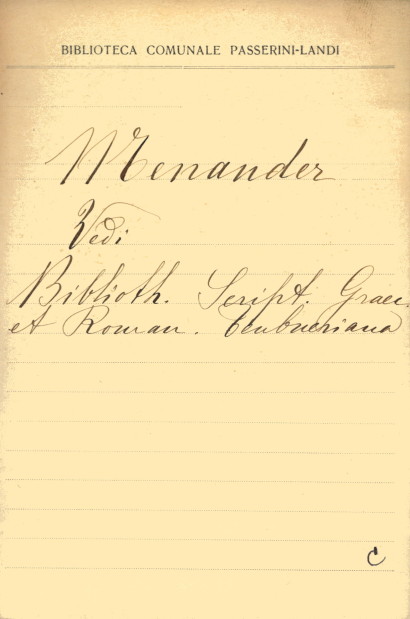 BIBLIOTECA COMUNALE PASSERINI-LANDI
Menander
Vedi
Biblioth. Script. Graec.
et Roman. Teubneriana
C